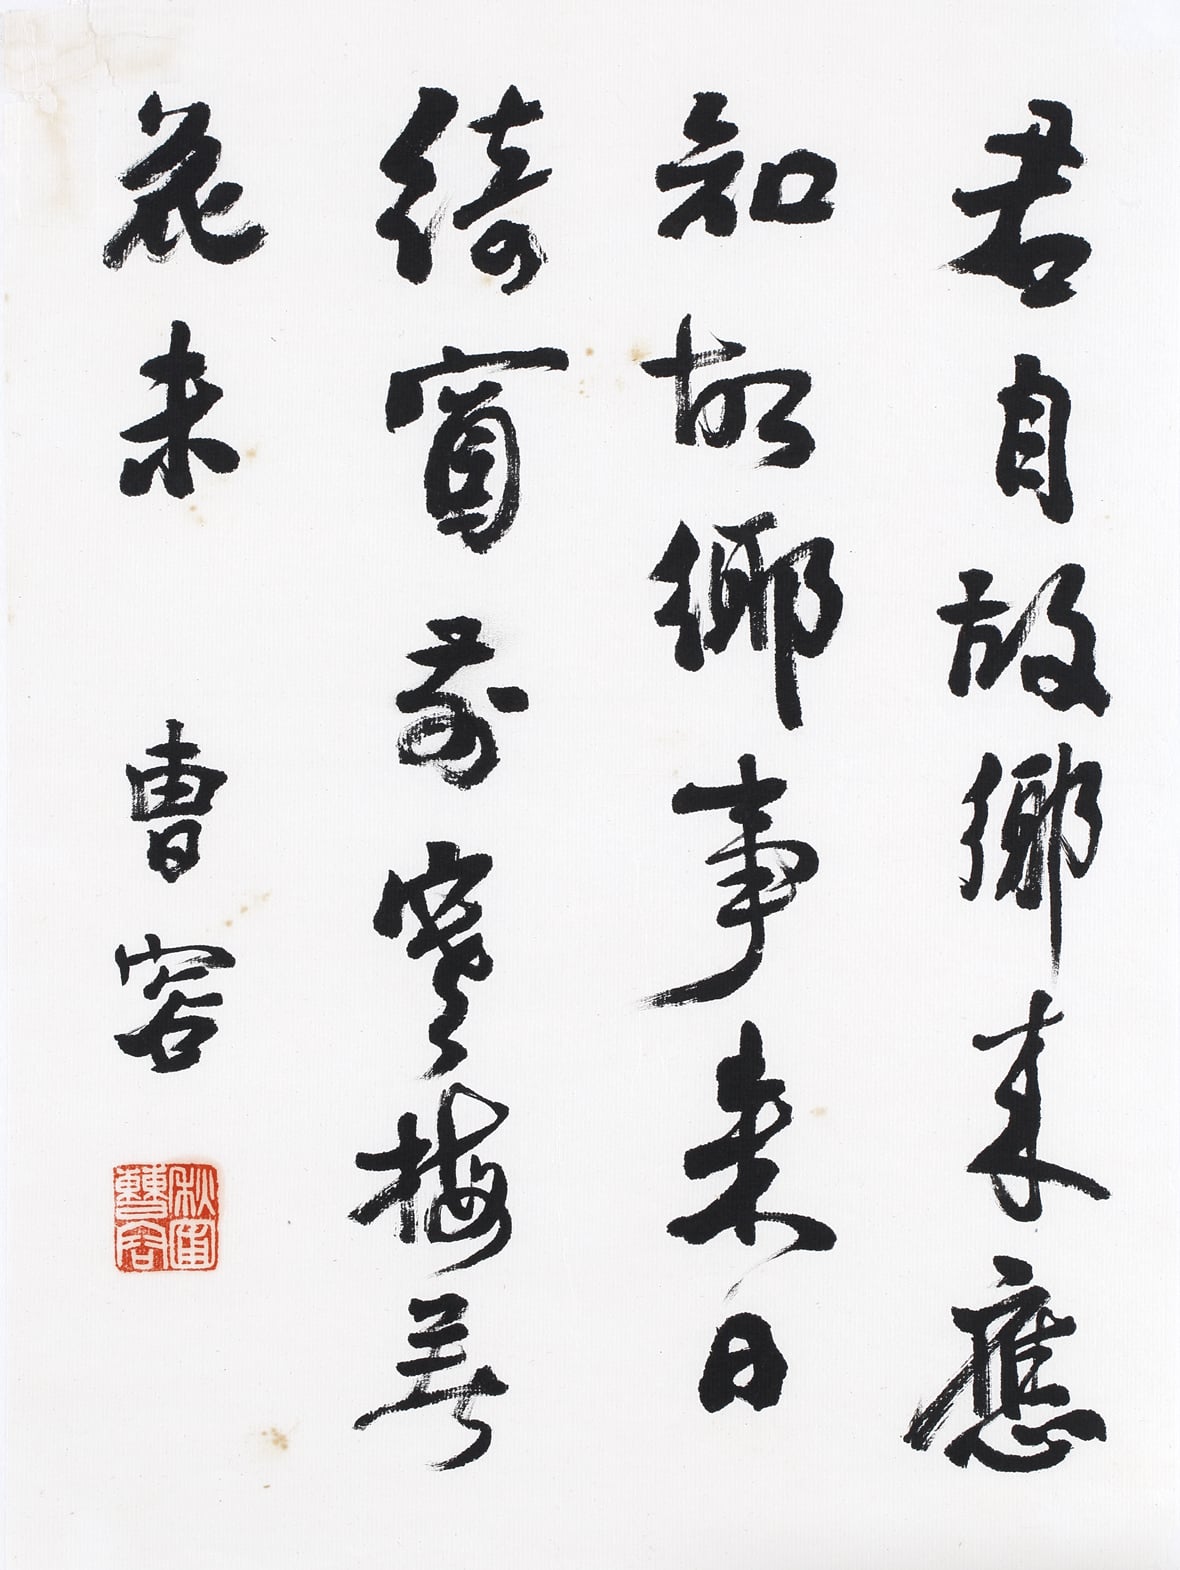 君自故鄉來應
知故鄉事來日
綺窗前寒梅著
花未
曹容
秋圃曹容